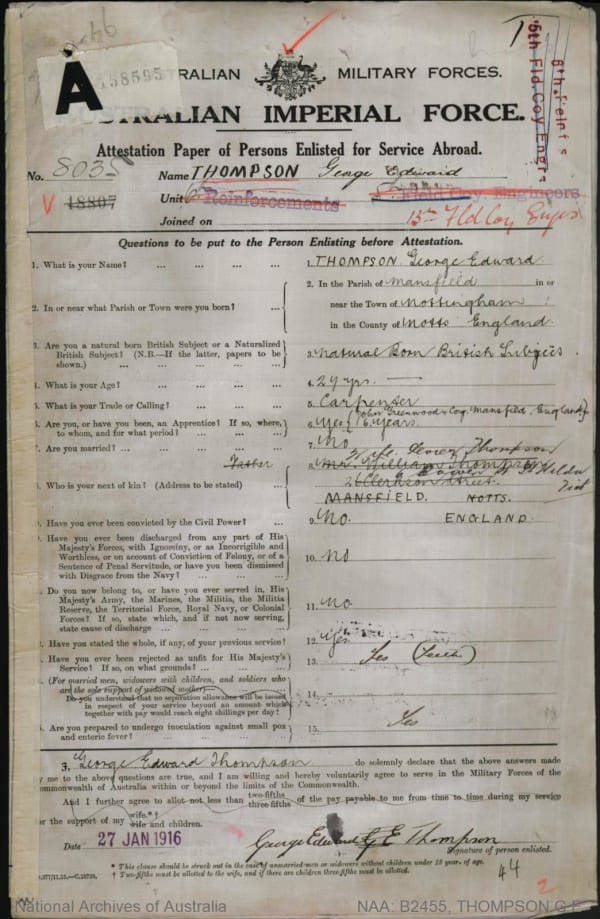 A 158595
AUSTRALIAN MILITARY FORCES.
AUSTRALIAN IMPERIAL FORCE.
Attestation Paper of Persons Enlisted for Service Abroad.
5th Fld Coy Engrs
No. 8035 Name THOMPSON George Edward
V 18807 Unit Reinforcements Field Coy. Engineers
Joined on 15th Fld Coy Engrs
Questions to be put to the Person Enlisting before Attestation.
1. What is your Name? ... ... ... ... 1. THOMPSON George Edward
2. In or near what Parish or Town were you born? ... 2. In the Parish of Mansfield in or
near the Town of Nottingham
in the County of Notts England
3. Are you a natural born British Subject or a Naturalized
British Subject? (N.B.—If the latter, papers to be
shown.) 3. Natural Born British Subject
4. What is your Age? 4. 29 yrs.
5. What is your Trade or Calling? 5. Carpenter
6. Are you, or have you been, an Apprentice? If so, where,
to whom, and for what period? 6. Yes John Greenwood & Coy. Mansfield, England 6 years
7. Are you married? 7. No
Father
8. Who is your next of kin? (Address to be stated) 8. Wife Thompson
Mr. William Thompson
St Kilda
Vict
Street
MANSFIELD. NOTTS.
ENGLAND
. Have you ever been convicted by the Civil Power? 9. No.
. Have you ever been discharged from any part of His
Majesty's Forces, with Ignominy, or as Incorrigible and
Worthless, or on account of Conviction of Felony, or of a
Sentence of Penal Servitude, or have you been dismissed
with Disgrace from the Navy? 10. No
. Do you now belong to, or have you ever served in, His
Majesty's Army, the Marines, the Militia, the Militia
Reserve, the Territorial Force, Royal Navy, or Colonial
Forces? If so, state which, and if not now serving,
state cause of discharge 11. No.
. Have you stated the whole, if any, of your previous service? 12. Yes
. Have you ever been rejected as unfit for His Majesty's
Service? If so, on what grounds? 13. Yes (Teeth)
. (For married men, widowers with children, and soldiers who
are the sole support of widowed mother)
Do you understand that no separation allowance will be issued
in respect of your service beyond an amount which
together with pay would reach eight shillings per day? 14.
. Are you prepared to undergo inoculation against small pox
and enteric fever? 15. Yes
I, George Edward Thompson do solemnly declare that the above answers made
by me to the above questions are true, and I am willing and hereby voluntarily agree to serve in the Military Forces of the
Commonwealth of Australia within or beyond the limits of the Commonwealth.
And I further agree to allot not less than two-fifths three-fifths of the pay payable to me from time to time during my service
for the support of my wife.*†
wife and children.
Date 27 JAN 1916 George Edward G E Thompson
Signature of person enlisted.
* This clause should be struck out in the case of unmarried men or widowers without children under 18 years of age.
† Two-fifths must be allotted to the wife, and if there are children three-fifths must be allotted.
D.277/11.15.—C.16723.
44
2
National Archives of Australia NAA: B2455, THOMPSON G E